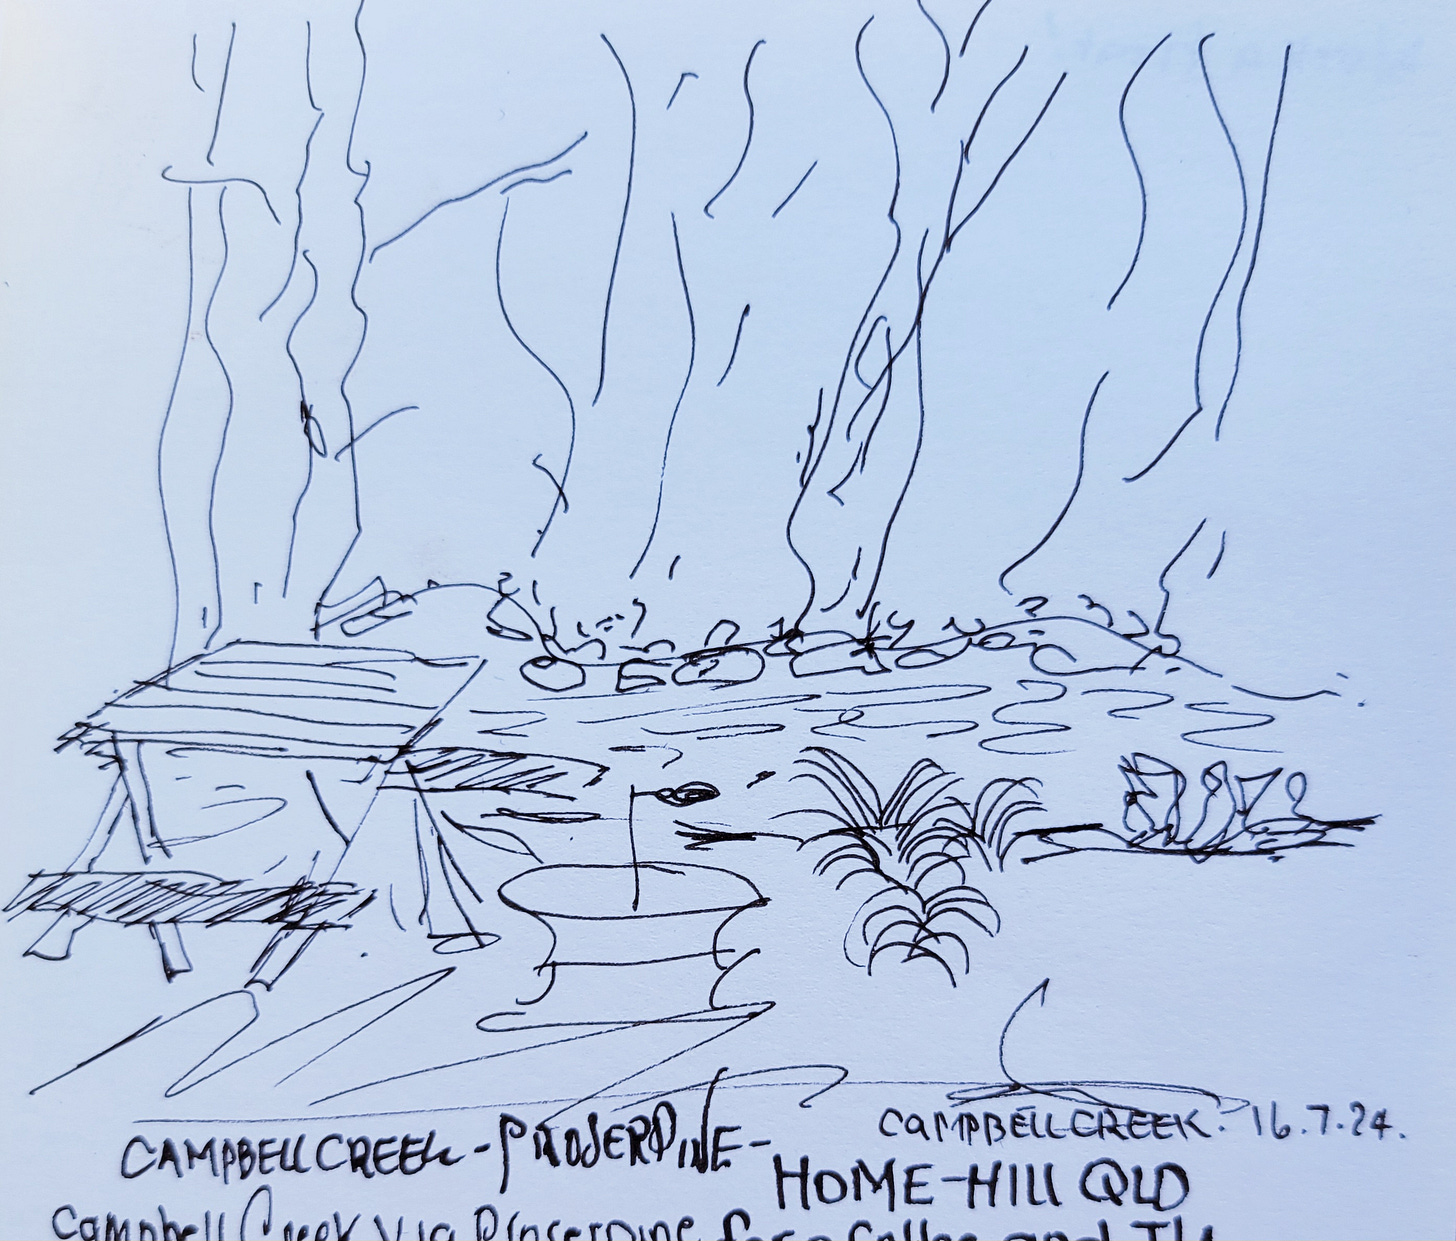 CAMPBELL CREEK. 16.7.24.
CAMPBELL CREEK - PROSERPINE -
HOME-HILL QLD
Campbell Creek Via Proserpine for a Coffee and